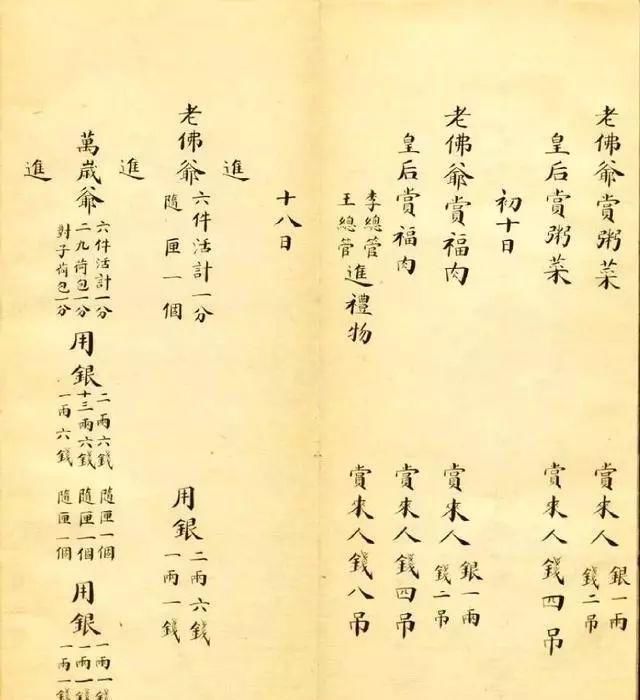 老佛爺賞粥菜　賞來人 銀一兩 錢二吊
皇后賞粥菜　賞來人錢四吊
初十日
老佛爺賞福肉　賞來人 銀一兩 錢二吊
皇后賞福肉　賞來人錢四吊
李總管 王總管 進禮物　賞來人錢八吊
十八日
進
老佛爺 六件活計一分 隨匣一個　用銀 二兩六錢 一兩一錢
進
萬歲爺 六件活計一分 二九荷包一分 對子荷包一分 用銀 二兩六錢 十三兩六錢 一兩六錢 隨匣一個 隨匣一個 隨匣一個 用銀 一兩一錢 一兩一錢 一兩一錢
進